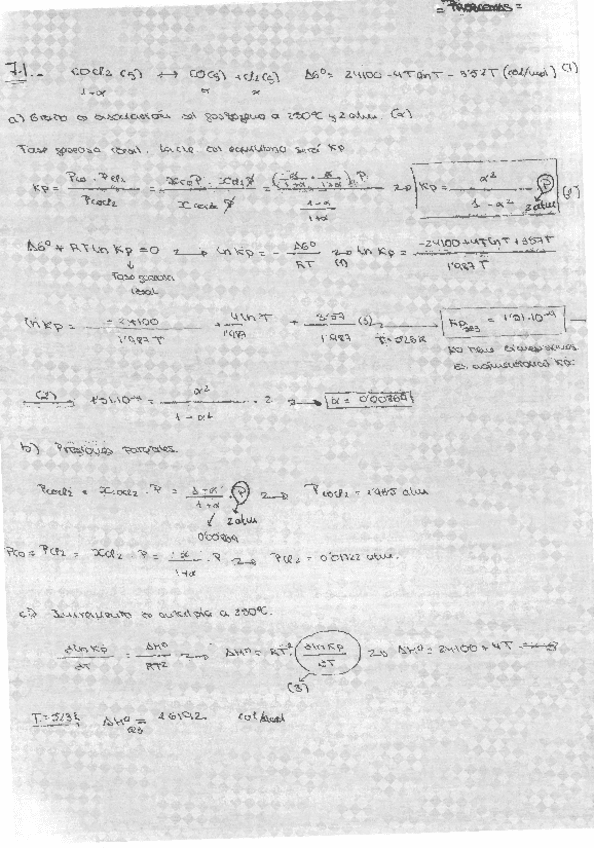 = PROBLEMAS =
7.1.- COCl2 (g) ↔ CO(g) + Cl2(g) ΔGº = 24100 - 4T ln T - 3'57T (cal/mol) (1)
1-α α α
a) Grado de disociación del fosgeno a 250ºC y 2 atm. (α)
Fase gaseosa ideal. La cte. del equilibrio será Kp
Kp = Pco · Pcl2 / Pcocl2 = xco P · xcl2 P / xcocl2 P = (α/1+α · α/1+α) P / 1-α/1+α → Kp = α² / 1-α² P (2)
2 atm
ΔGº + RT ln Kp = 0 → ln Kp = - ΔGº / RT → (1) ln Kp = -24100 + 4T ln T + 3'57T / 1'987 T
Fase gaseosa
ideal
ln Kp = -24100 / 1'987 T + 4 ln T / 1'987 + 3'57 / 1'987 (3) → T=523K Kp523 = 1'51·10⁻⁴
no tiene dimensiones
es adimensional Kp.
(2) → 1'51·10⁻⁴ = α² / 1-α² · 2 → α = 0'00869
b) Presiones parciales.
Pcocl2 = xcocl2 · P = 1-α / 1+α · P → Pcocl2 = 1'965 atm
2 atm
0'00869
Pco = Pcl2 = xcl2 · P = α / 1+α · P → Pcl2 = 0'01722 atm.
c) Incremento de entalpía a 250ºC.
d ln Kp / dT = ΔHº / RT² → ΔHº = RT² · d ln Kp / dT → ΔHº = 24100 + 4T
(3)
T = 523K ΔHº523 = 26192 cal/mol